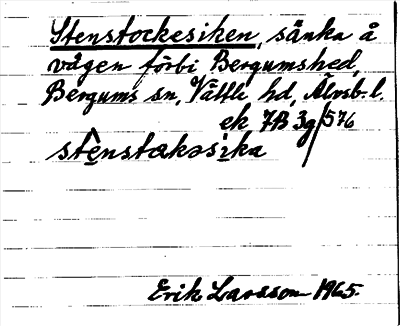 Stenstockesiken, sänka å
vägen förbi Bergumshed,
Bergums sn, Vättle hd, Älvsb. l.
ek 7B 3g/576
stènstakəsika
Erik Larsson 1965.